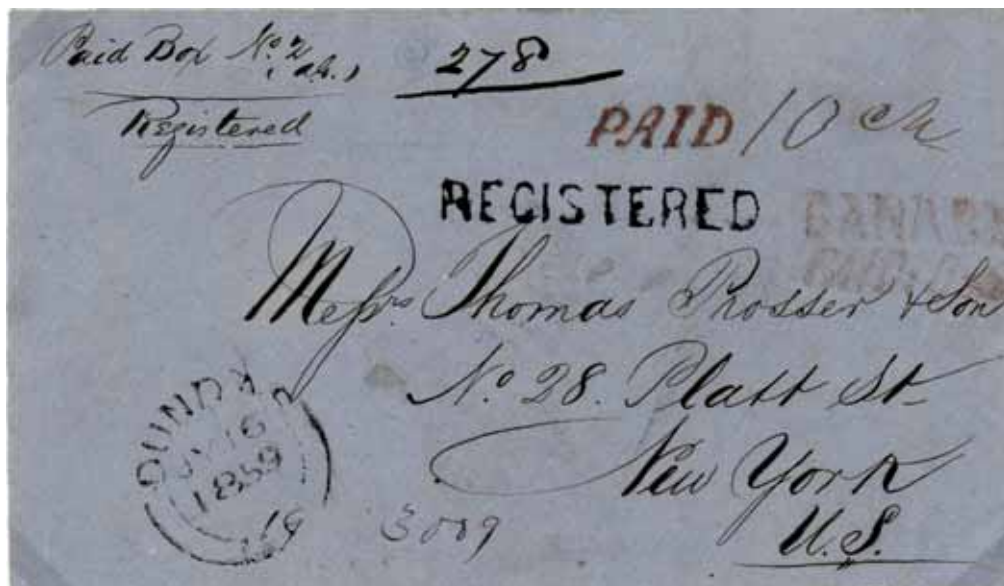 Paid Box No. 2 278
Registered
PAID 10 cts
REGISTERED
Messrs. Thomas Prosser & Son
No 28. Platt St.
New York
U.S.
DUNDAS
16
1859
3009